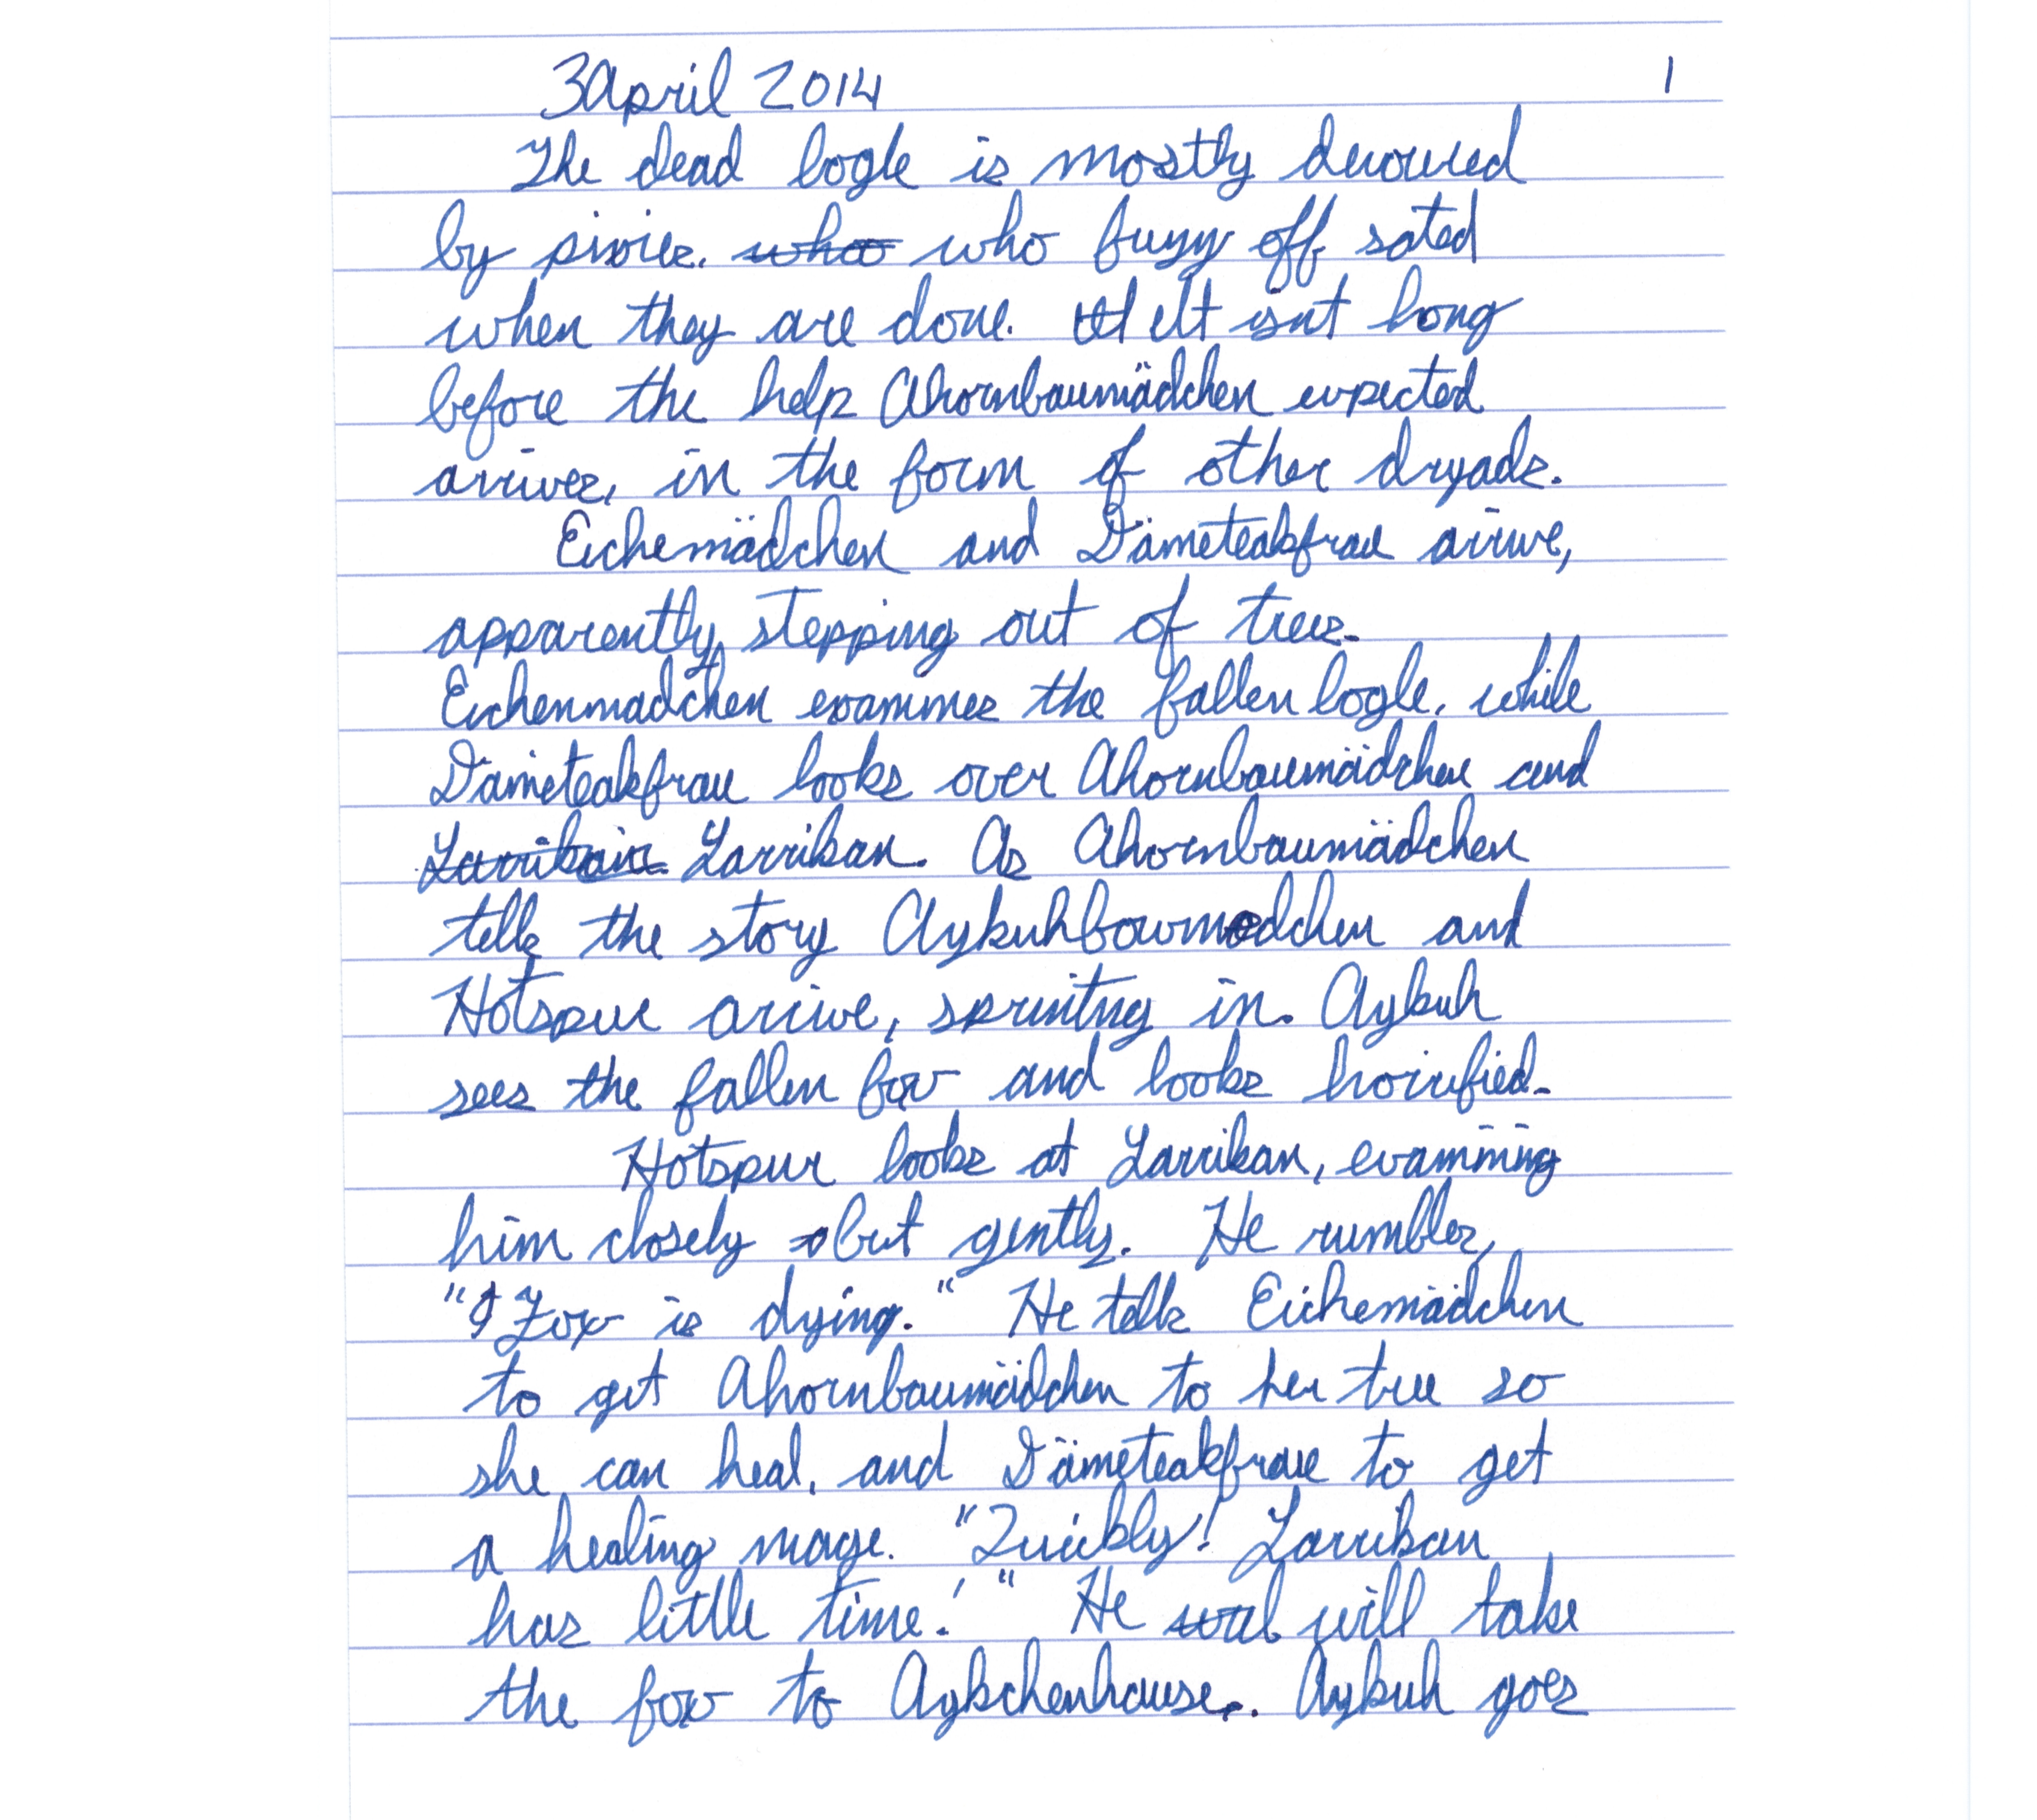 3 April 2014 1
The dead bogle is mostly devoured
by pixies. who who buzz off sated
when they are done. It It isn't long
before the help Ahornbaumädchen expected
arrives, in the form of other dryads.
Eichemädchen and Dämeteakfrau arrive,
apparently stepping out of trees.
Eichenmadchen examines the fallen bogle, while
Dämeteakfrau looks over Ahornbaumädchen and
Larrikain Larrikan. As Ahornbaumädchen
tells the story Aykuhbowmadchen and
Hotspur arrive, sprinting in. Aykuh
sees the fallen fox and looks horrified.
Hotspur looks at Larrikan, examining
him closely but gently. He rumbles,
"Fox is dying." He tells Eichemädchen
to get Ahornbaumädchen to her tree so
she can heal, and Dämeteakfrau to get
a healing mage. "Quickly! Larrikan
has little time!" He will take
the fox to Aykschenhause. Aykuh goes